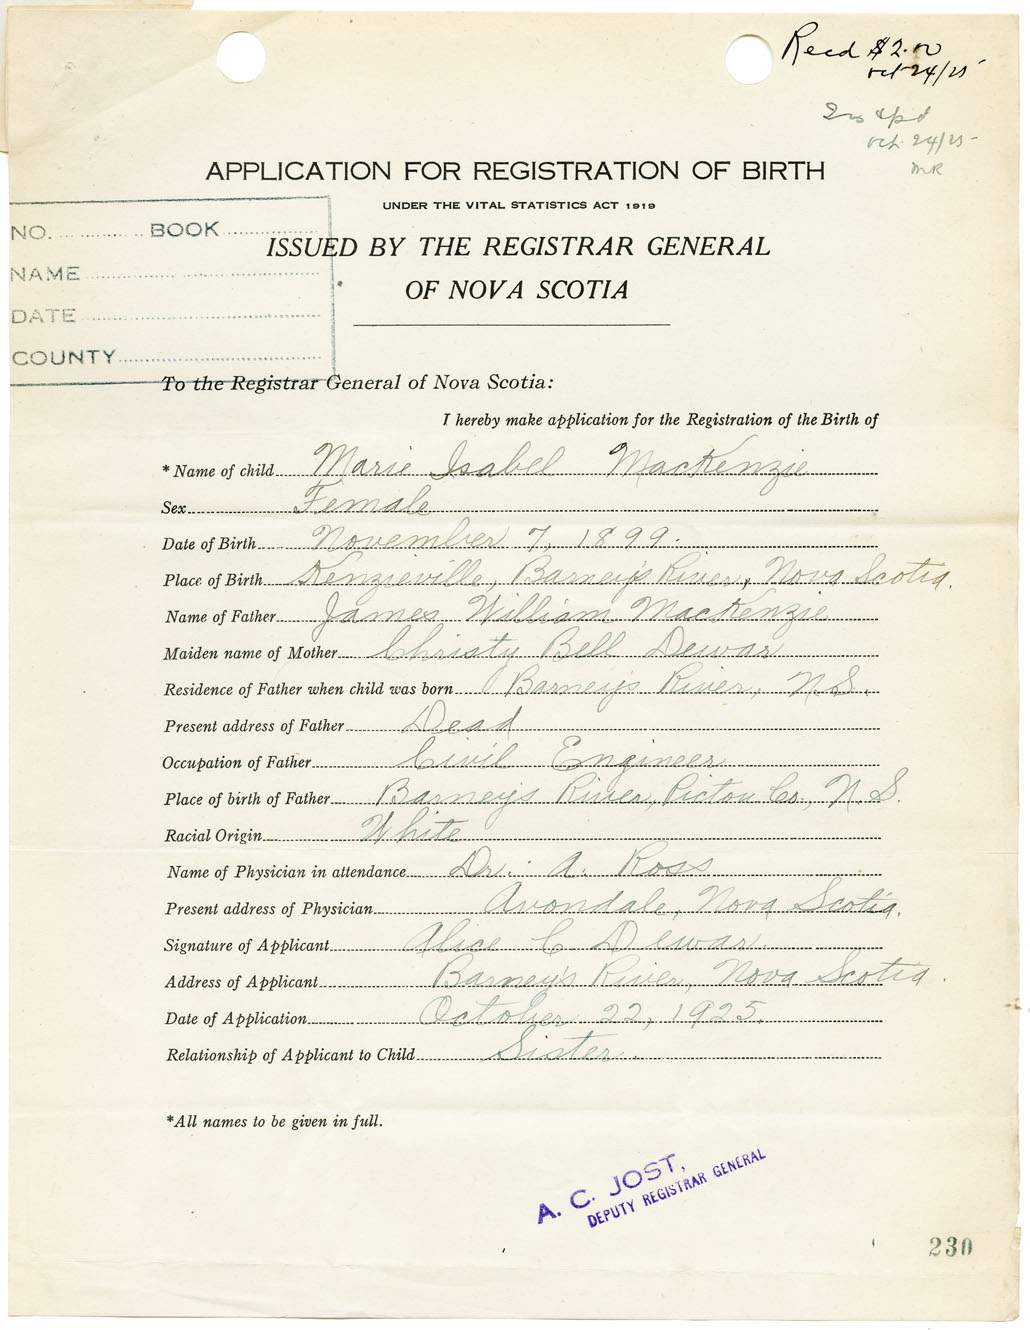 Recd $2.00
Oct 24/25
Oct. 24/25
MR
APPLICATION FOR REGISTRATION OF BIRTH
UNDER THE VITAL STATISTICS ACT 1919
NO. BOOK
ISSUED BY THE REGISTRAR GENERAL
NAME
OF NOVA SCOTIA
DATE
COUNTY
To the Registrar General of Nova Scotia:
I hereby make application for the Registration of the Birth of
* Name of child Marie Isabel MacKenzie
Sex Female
Date of Birth November 7, 1899.
Place of Birth Kenzieville, Barney's River, Nova Scotia.
Name of Father James William MacKenzie
Maiden name of Mother Christy Bell Dewar
Residence of Father when child was born Barney's River, N.S.
Present address of Father Dead
Occupation of Father Civil Engineer
Place of birth of Father Barney's River, Pictou Co., N.S.
Racial Origin White
Name of Physician in attendance Dr. A. Ross
Present address of Physician Avondale, Nova Scotia.
Signature of Applicant Alice C Dewar.
Address of Applicant Barney's River, Nova Scotia.
Date of Application October 22, 1925.
Relationship of Applicant to Child Sister.
*All names to be given in full.
A. C. JOST,
DEPUTY REGISTRAR GENERAL
230